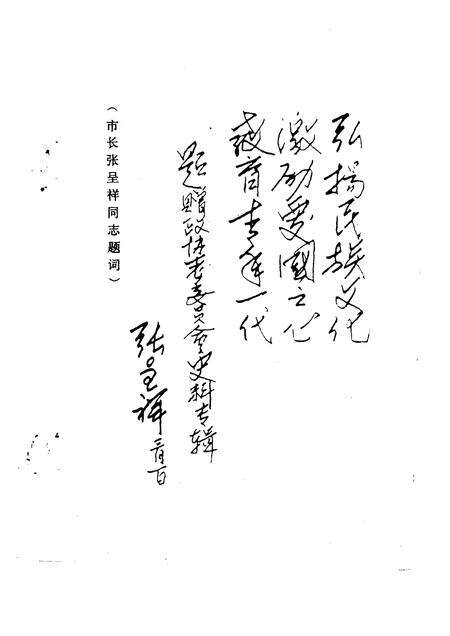 弘揚民族文化
激励爱國之心
教育青年一代
题赠政协委员会史料专辑
张呈祥
（市长张呈祥同志题词）